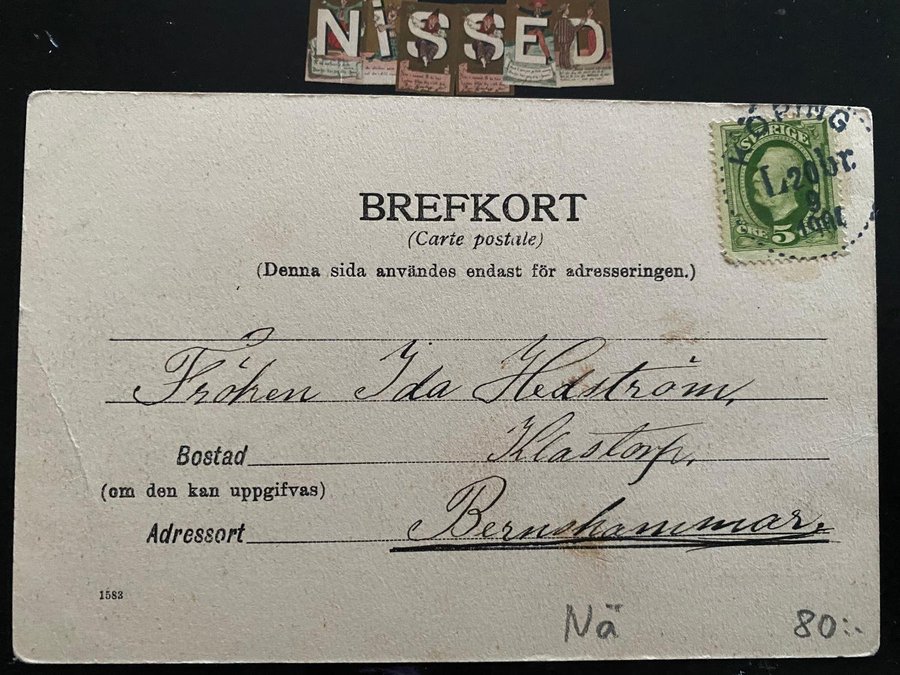 NiSSED
KÖPING
SVERIGE
L.20br.
9
1901
ÖRE 5
BREFKORT
(Carte postale)
(Denna sida användes endast för adresseringen.)
Fröken Ida Hedström,
Bostad Klastorp,
(om den kan uppgifvas)
Adressort Bernshammar.
1583
Nä 80:-